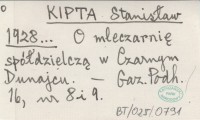 KIPTA Stanisław
1928... O mleczarnię
spółdzielczą w Czarnym
Dunajcu. — Gaz. Podh.
16, nr 8 i 9.
BT/025/0791